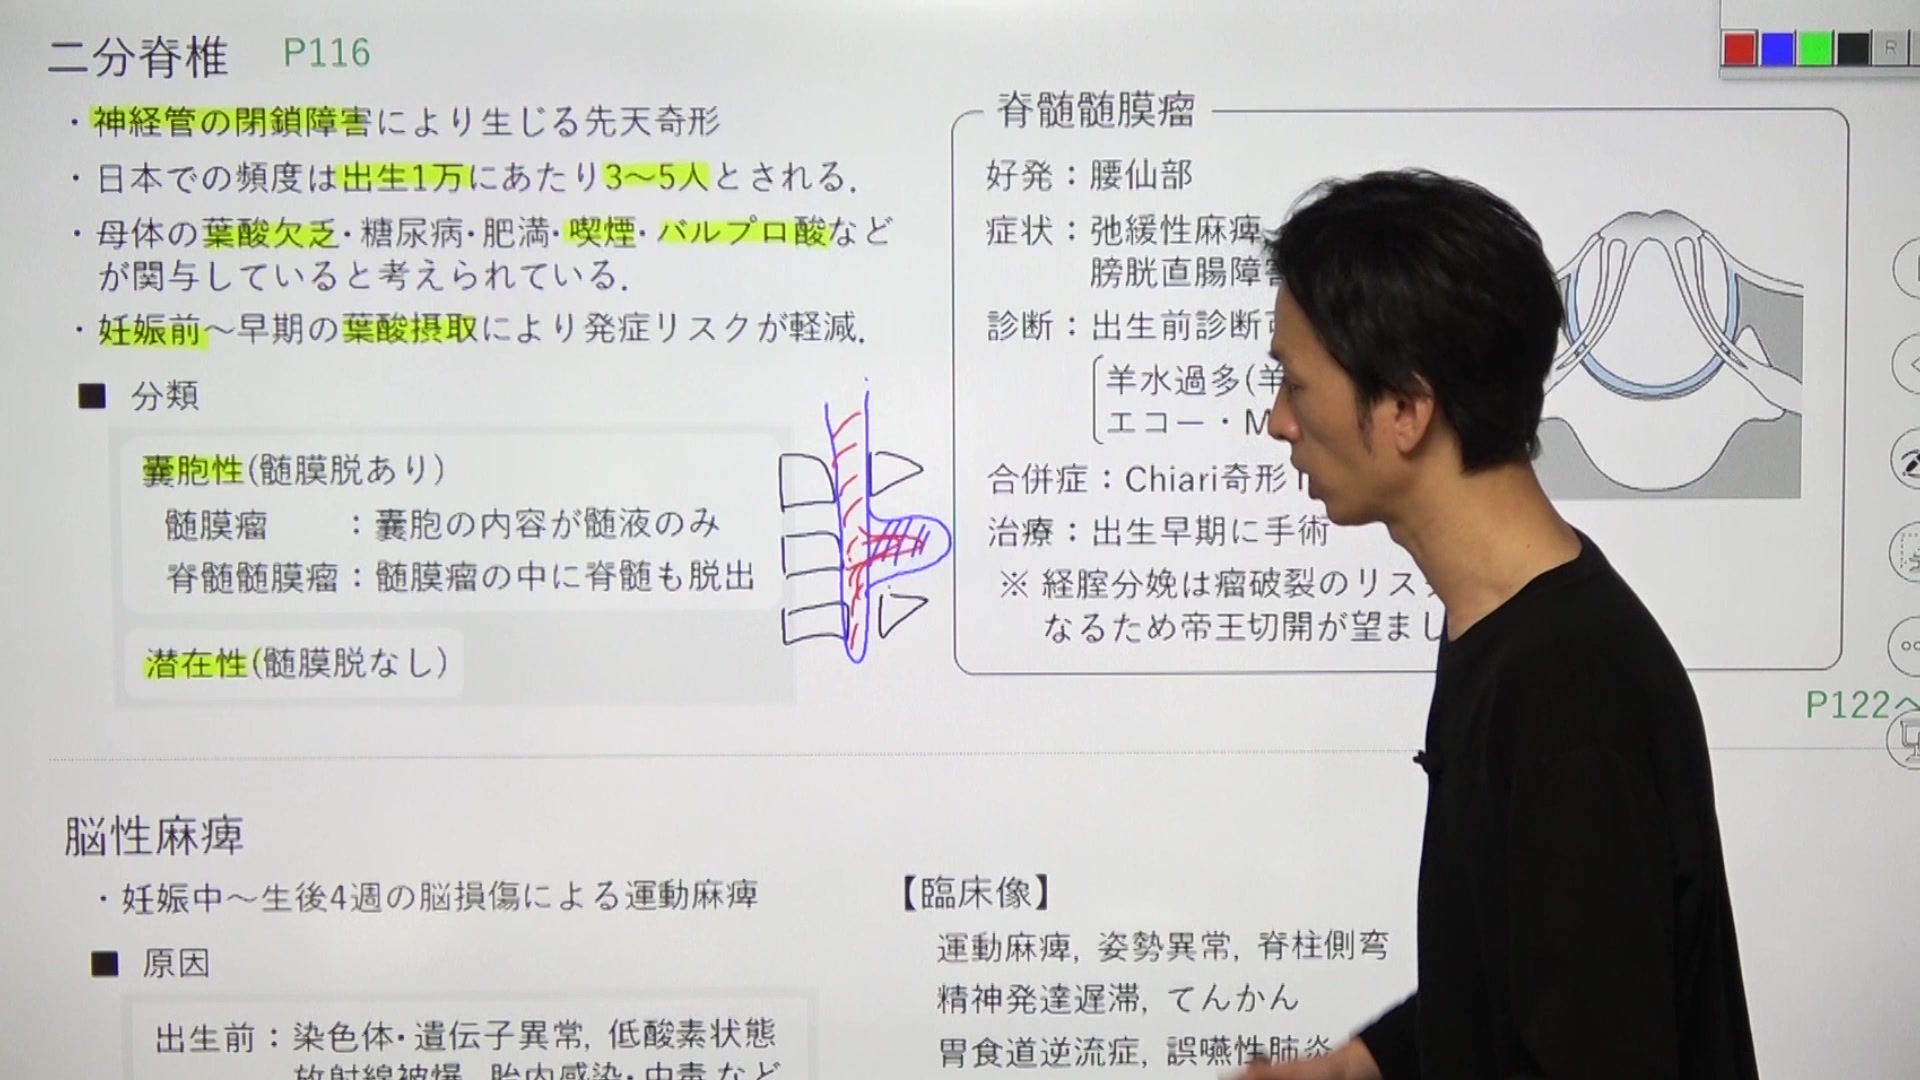 二分脊椎 P116
・神経管の閉鎖障害により生じる先天奇形
・日本での頻度は出生1万にあたり3〜5人とされる．
・母体の葉酸欠乏・糖尿病・肥満・喫煙・バルプロ酸など
が関与していると考えられている．
・妊娠前〜早期の葉酸摂取により発症リスクが軽減．
■ 分類
嚢胞性(髄膜脱あり)
髄膜瘤 ：嚢胞の内容が髄液のみ
脊髄髄膜瘤：髄膜瘤の中に脊髄も脱出
潜在性(髄膜脱なし)
脊髄髄膜瘤
好発：腰仙部
症状：弛緩性麻痺
膀胱直腸障害
診断：出生前診断
羊水過多(羊
エコー・M
合併症：Chiari奇形
治療：出生早期に手術
※ 経腟分娩は瘤破裂のリス
なるため帝王切開が望まし
P122へ
R
脳性麻痺
・妊娠中〜生後4週の脳損傷による運動麻痺
■ 原因
出生前：染色体・遺伝子異常，低酸素状態
放射線被爆，胎内感染・中毒 など
【臨床像】
運動麻痺，姿勢異常，脊柱側弯
精神発達遅滞，てんかん
胃食道逆流症，誤嚥性肺炎